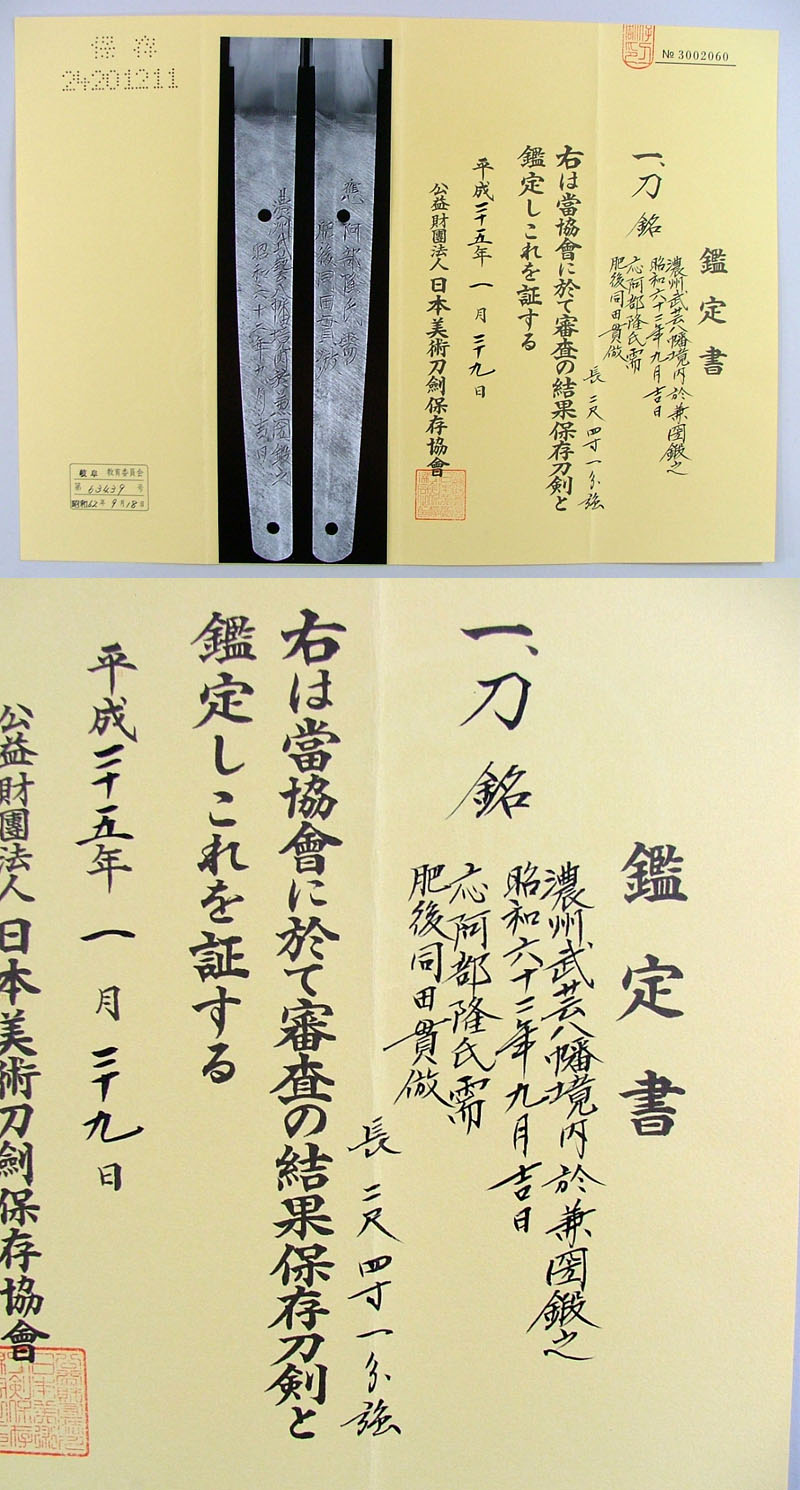 保存
24201211
№ 3002060
鑑定書
一、刀 銘
濃州武芸八幡境内於兼圀鍛之
昭和六十二年九月吉日
応阿部隆氏需
肥後同田貫倣
長 二尺四寸一分強
右は當協會に於て審査の結果保存刀剣と
鑑定しこれを証する
平成二十五年 一月 二十九日
公益財團法人 日本美術刀劍保存協會
應 阿部隆氏需
肥後同田貫倣
昭和六十二年九月吉日
岐阜 教育委員会
第 63439 号
昭和62年 9月18日
鑑定書
一、刀 銘
濃州武芸八幡境内於兼圀鍛之
昭和六十二年九月吉日
応阿部隆氏需
肥後同田貫倣
長 二尺四寸一分強
右は當協會に於て審査の結果保存刀剣と
鑑定しこれを証する
平成二十五年 一月 二十九日
公益財團法人 日本美術刀劍保存協會